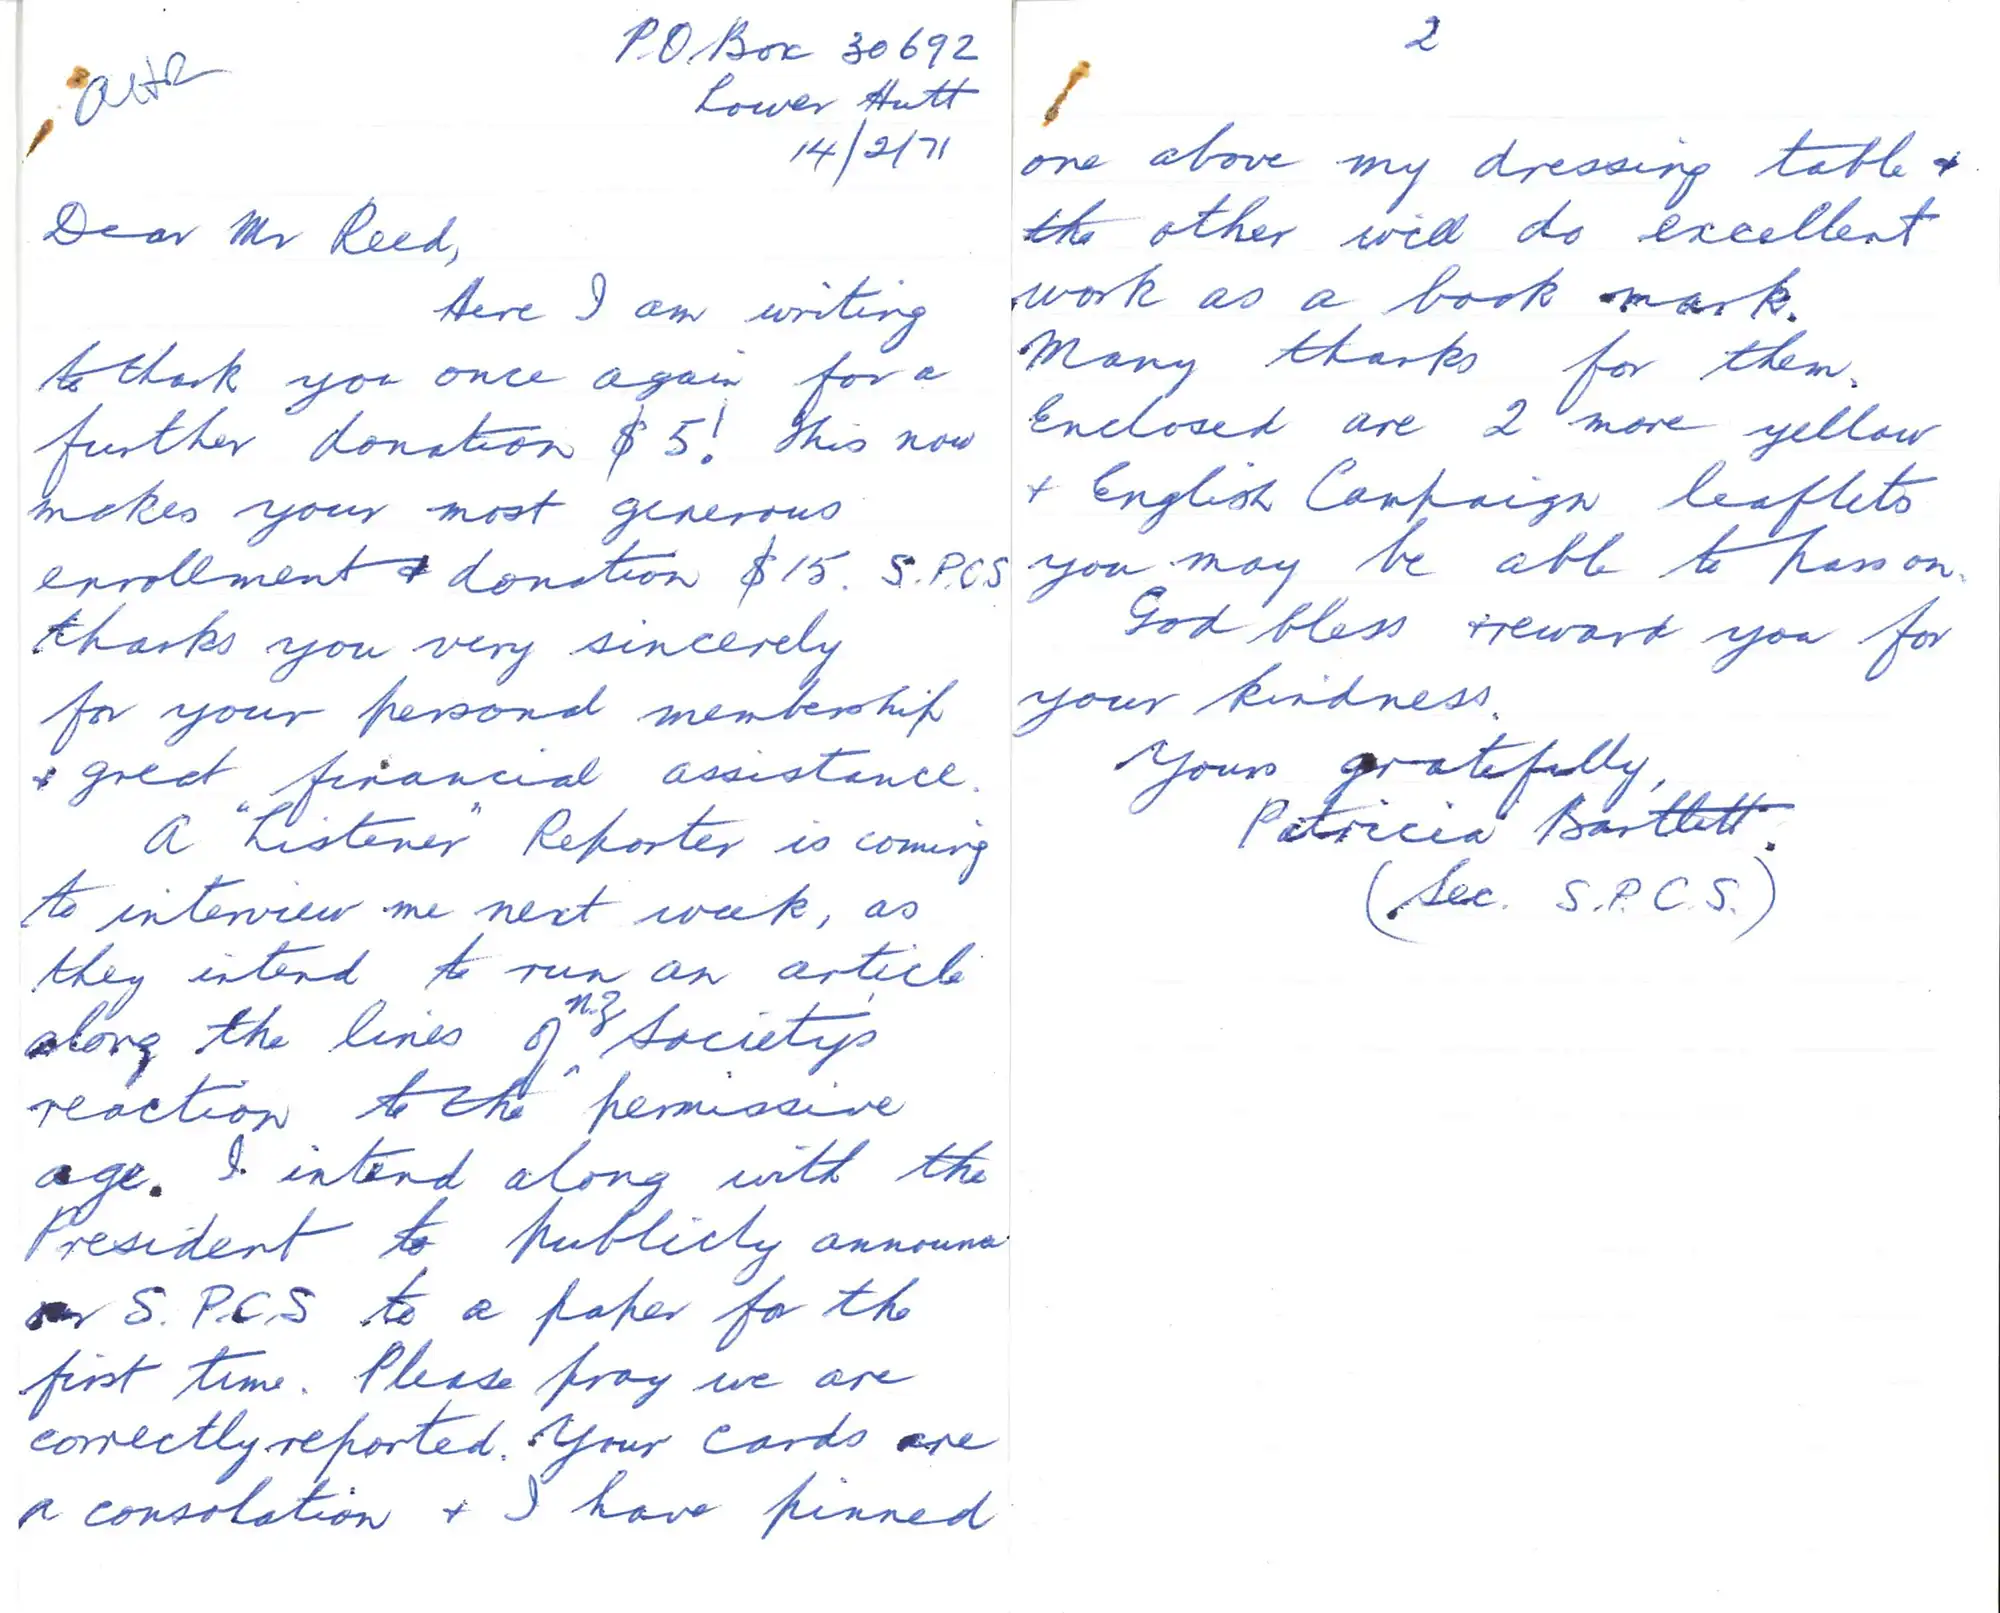 AHR
P.O. Box 30692
Lower Hutt
14/2/71
Dear Mr Reed,
Here I am writing
to thank you once again for a
further donation $5! This now
makes your most generous
enrollment & donation $15. S.P.C.S
thanks you very sincerely
for your personal membership
& great financial assistance.
A "Listener" Reporter is coming
to interview me next week, as
they intend to run an article
along the lines of N.Z Society's
reaction to the permissive
age. I intend along with the
President to publicly announce
our S.P.C.S to a paper for the
first time. Please pray we are
correctly reported. Your cards are
a consolation & I have pinned
2
one above my dressing table &
the other will do excellent
work as a book mark.
Many thanks for them.
Enclosed are 2 more yellow
& English Campaign leaflets
you may be able to pass on.
God bless & reward you for
your kindness.
Yours gratefully,
Patricia Bartlett.
(Sec. S.P.C.S.)